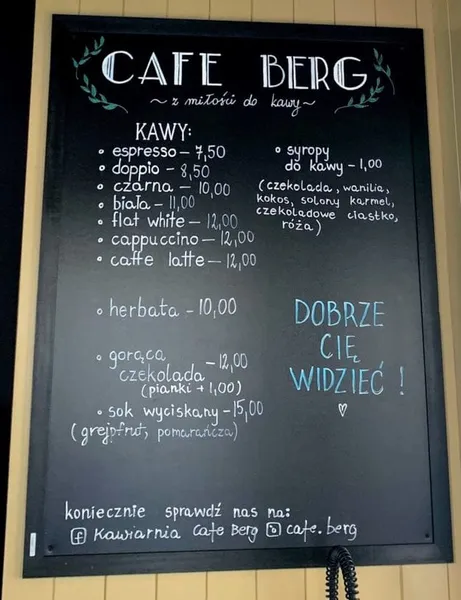 CAFE BERG
~ z miłości do kawy ~
KAWY:
• espresso – 7,50
• doppio – 8,50
• czarna – 10,00
• biała – 11,00
• flat white – 12,00
• cappuccino – 12,00
• caffe latte – 12,00
• syropy
do kawy – 1,00
(czekolada, wanilia,
kokos, solony karmel,
czekoladowe ciastko,
róża)
• herbata – 10,00
• gorąca
czekolada – 12,00
(pianki + 1,00)
• sok wyciskany – 15,00
(grejpfrut, pomarańcza)
DOBRZE
CIĘ
WIDZIEĆ !
koniecznie sprawdź nas na:
f Kawiarnia Cafe Berg cafe.berg